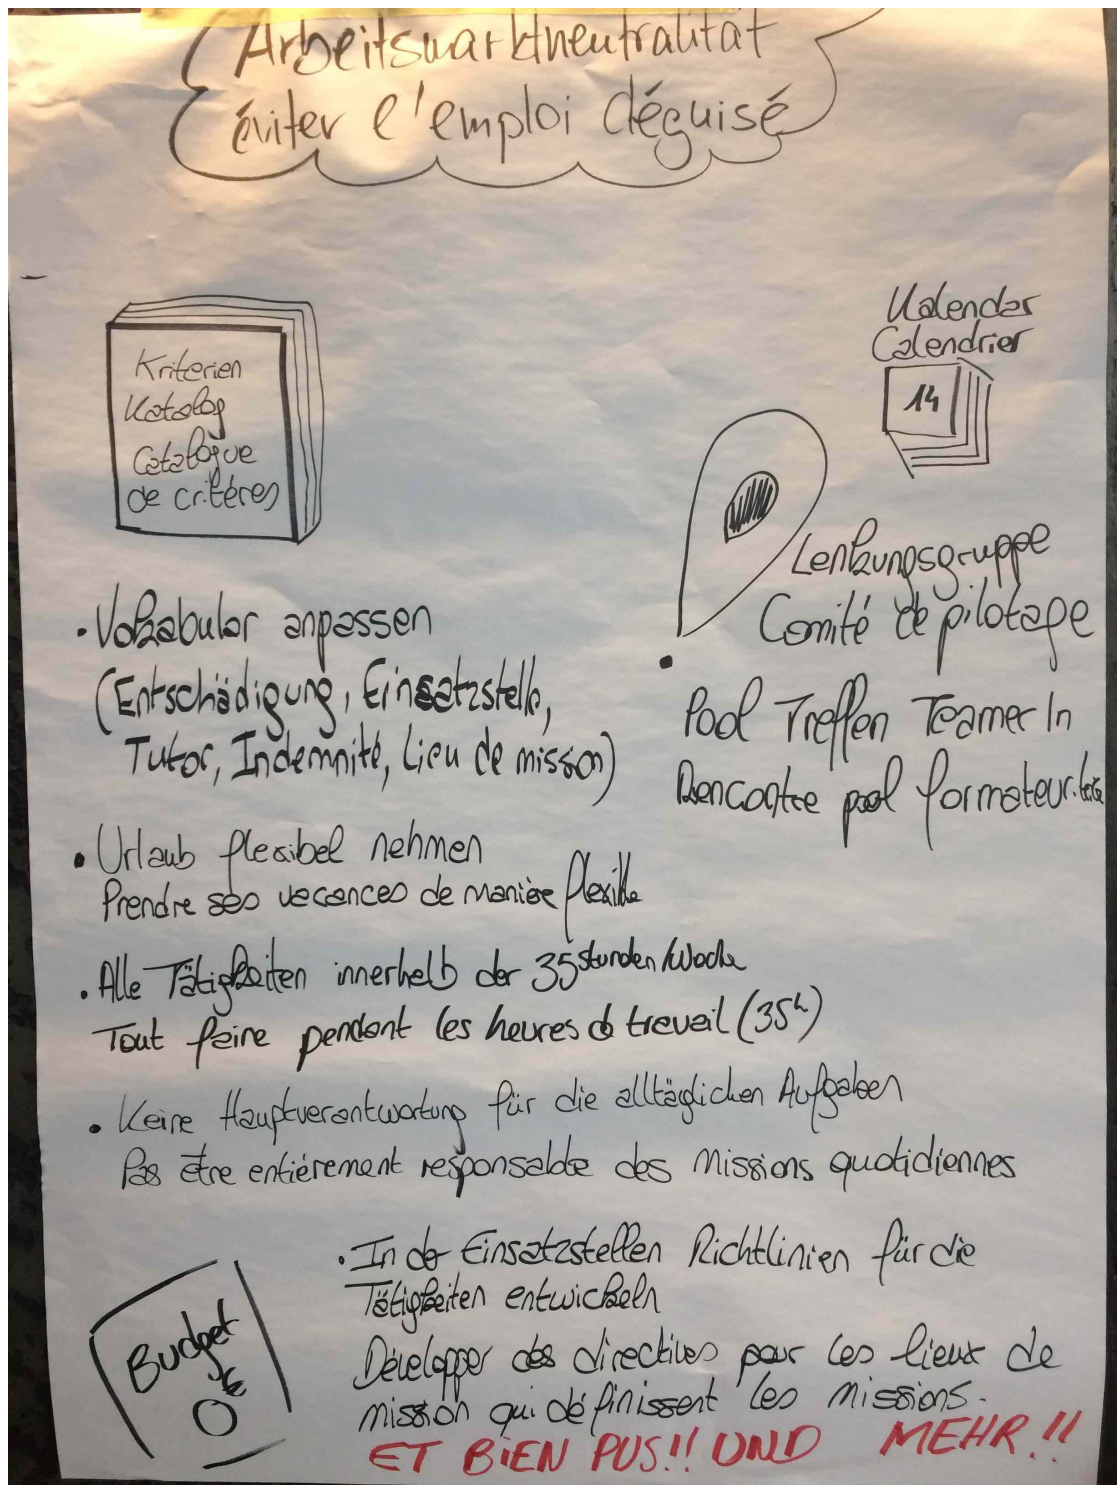 Arbeitsmarktneutralität
éviter l'emploi déguisé
Kriterien
Katalog
Catalogue
de critères
Kalender
Calendrier
14
Lenkungsgruppe
Comité de pilotage
Pool Treffen TeamerIn
Rencontre pool formateur.trice
• Vokabular anpassen
(Entschädigung, Einsatzstelle,
Tutor, Indemnité, Lieu de misson)
• Urlaub flexibel nehmen
Prendre ses vacances de manière flexible
• Alle Tätigkeiten innerhalb der 35 stunden/Woche
Tout faire pendant les heures de travail (35h)
• Keine Hauptverantwortung für die alltäglichen Aufgaben
Pas être entièrement responsable des missions quotidiennes
• In der Einsatzstellen Richtlinien für die
Tätigkeiten entwickeln
Développer des directives pour les lieux de
mission qui définissent les missions.
Budget
€
ET BIEN PUS!! UND MEHR!!